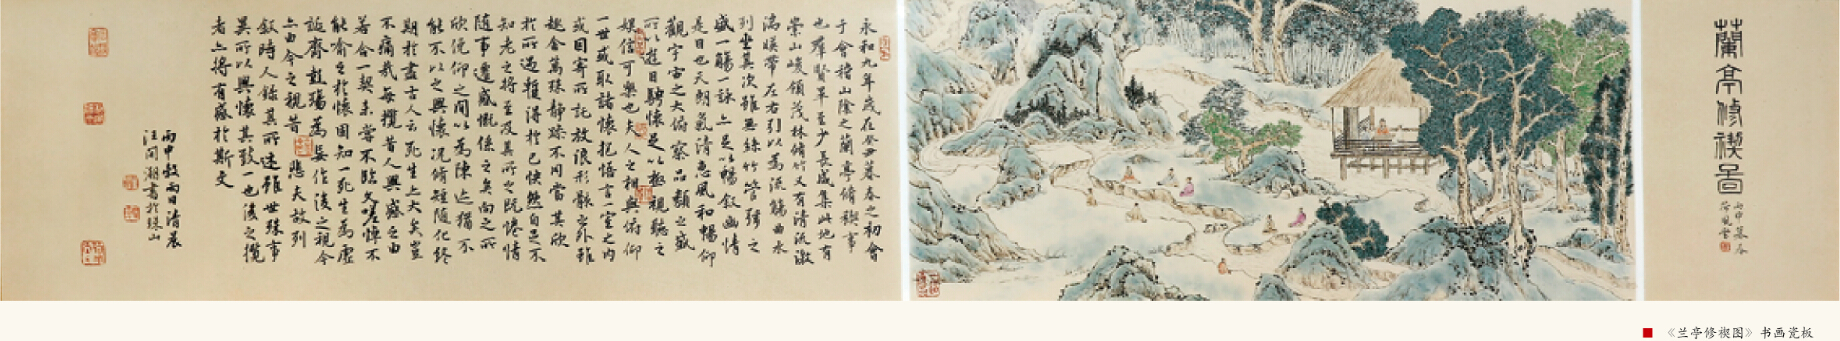 蘭亭修禊圖
丙申暮春
永和九年歲在癸丑暮春之初會
于會稽山陰之蘭亭脩禊事
也群賢畢至少長咸集此地有
崇山峻領茂林脩竹又有清流激
湍暎帶左右引以為流觴曲水
列坐其次雖無絲竹管弦之
盛一觴一詠亦足以暢敘幽情
是日也天朗氣清惠風和暢仰
觀宇宙之大俯察品類之盛
所以遊目騁懷足以極視聽之
娛信可樂也夫人之相與俯仰
一世或取諸懷抱悟言一室之內
或因寄所託放浪形骸之外雖
趣舍萬殊靜躁不同當其欣
於所遇蹔得於己快然自足不
知老之將至及其所之既惓情
隨事遷感慨係之矣向之所
欣俛仰之間以為陳迹猶不
能不以之興懷況脩短隨化終
期於盡古人云死生亦大矣豈
不痛哉每攬昔人興感之由
若合一契未嘗不臨文嗟悼不
能喻之於懷固知一死生為虛
誕齊彭殤為妄作後之視今
亦由今之視昔悲夫故列
敘時人錄其所述雖世殊事
異所以興懷其致一也後之攬
者亦將有感於斯文
丙申穀雨日清晨
書於珠山
《兰亭修禊图》书画瓷板